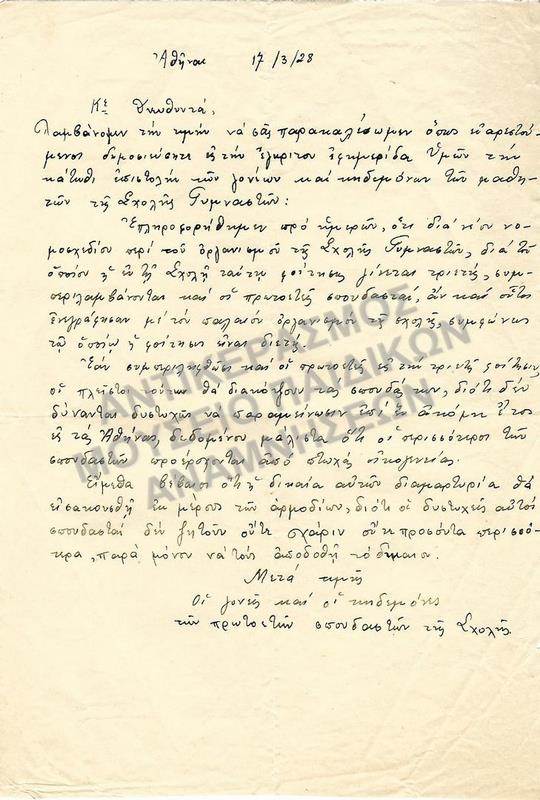 Ἀθῆναι 17/3/28
Κε Διευθυντά,
Λαμβάνομεν τὴν τιμὴν νὰ σᾶς παρακαλέσωμεν ὅπως εὐαρεστού-
μενοι δημοσιεύσητε εἰς τὴν ἔγκριτον ἐφημερίδα Ὑμῶν τὴν
κάτωθι ἐπιστολὴν τῶν γονέων καὶ κηδεμόνων τῶν μαθη-
τῶν τῆς Σχολῆς Γυμναστῶν:
Ἐπληροφορήθημεν πρὸ ἡμερῶν, ὅτι διὰ νέου νο-
μοσχεδίου περὶ τοῦ ὀργανισμοῦ τῆς Σχολῆς Γυμναστῶν, διὰ τοῦ
ὁποίου ἡ ἐν τῇ Σχολῇ ταύτῃ φοίτησις γίνεται τριετής, συμ-
περιλαμβάνονται καὶ οἱ πρωτοετεῖς σπουδασταί, ἂν καὶ οὗτοι
ἐνεγράφησαν μὲ τὸν παλαιὸν ὀργανισμὸν τῆς σχολῆς, συμφώνως
τῷ ὁποίῳ ἡ φοίτησις εἶναι διετής.
Ἐὰν συμπεριληφθῶσι καὶ οἱ πρωτοετεῖς εἰς τὴν τριετῆ φοίτησιν,
οἱ πλεῖστοι τούτων θὰ διακόψουν τὰς σπουδάς των, διότι δὲν
δύνανται δυστυχῶς νὰ παραμείνωσιν ἐπὶ ἓν ἀκόμη ἔτος
εἰς τὰς Ἀθήνας, δεδομένου μάλιστα ὅτι οἱ περισσότεροι τῶν
σπουδαστῶν προέρχονται ἀπὸ πτωχὰς οἰκογενείας.
Εἴμεθα βέβαιοι ὅτι ἡ δικαία αὐτῶν διαμαρτυρία θὰ
εἰσακουσθῇ ἐκ μέρους τῶν ἁρμοδίων, διότι οἱ δυστυχεῖς αὐτοὶ
σπουδασταὶ δὲν ζητοῦν οὔτε χάριν οὔτε προσόντα περισσό-
τερα, παρὰ μόνον νὰ τοὺς ἀποδοθῇ τὸ δίκαιον.
Μετὰ τιμῆς
Οἱ γονεῖς καὶ οἱ κηδεμόνες
τῶν πρωτοετῶν σπουδαστῶν τῆς Σχολῆς
ΑΝΤΙΚΕΡΑΣΜΟΣ
ΜΟΥΣΕΙΟ ΠΑΙΔΙΚΩΝ
ΑΝΑΜΝΗΣΕΩΝ